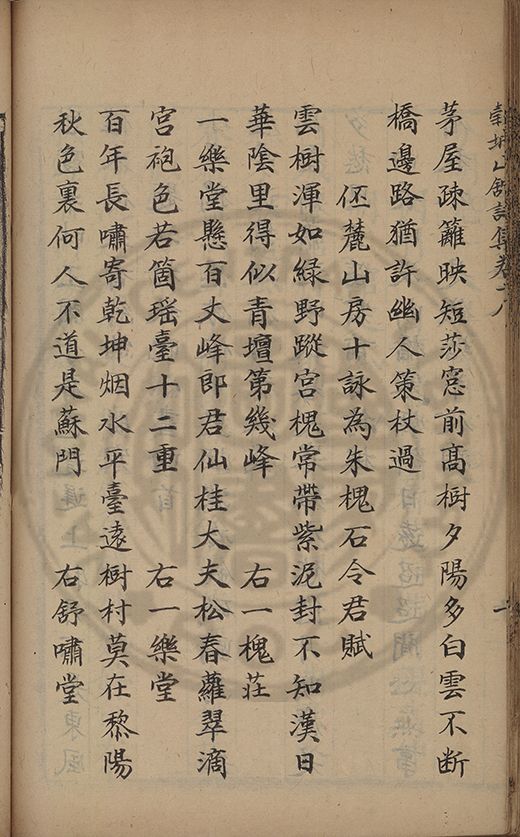 穀城山館詩集卷十八
茅屋疎籬映短莎窓前髙樹夕陽多白雲不断
橋邊路猶許幽人策杖過
伾麓山房十詠為朱槐石令君賦
雲樹渾如緑野蹤宫槐常帶紫泥封不知漢日
華陰里得似青壇第幾峰　右一槐莊
一樂堂懸百丈峰郎君仙桂大夫松春蘿翠滴
宮袍色若箇瑶臺十二重　右一樂堂
百年長嘯寄乾坤烟水平臺遠樹村莫在黎陽
秋色裏何人不道是蘇門　右舒嘯堂
一